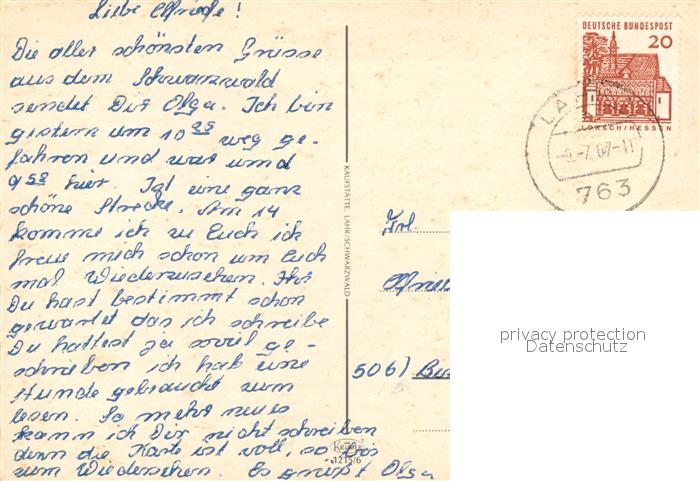 Liebe Elfriede!
Die aller schönsten Grüsse
aus dem Schwarzwald
sendet Dir Olga. Ich bin
gestern um 10 weg ge-
fahren und war umd
9 58 hier. Ist eine ganz
schöne Strecke. Am 14
komme ich zu Euch ich
freue mich schon um Euch
mal Wiederzusehen. Ihr
Du hast bestimmt schon
gewartet das ich schreibe
Du hattest ja soviel ge-
schrieben ich hab eine
stunde gebraucht zum
lesen. So mehr neues
kann ich Dir nicht schreiben
denn die Karte ist voll, so bis
zum Wiedersehen. Es grüsst Olga
KAUFSTÄTTE, LAHR/SCHWARZWALD
Krüger
1215/6
DEUTSCHE BUNDESPOST
20
LORSCH/HESSEN
-9.-7.67-11
763
Frl.
506)
privacy protection
Datenschutz